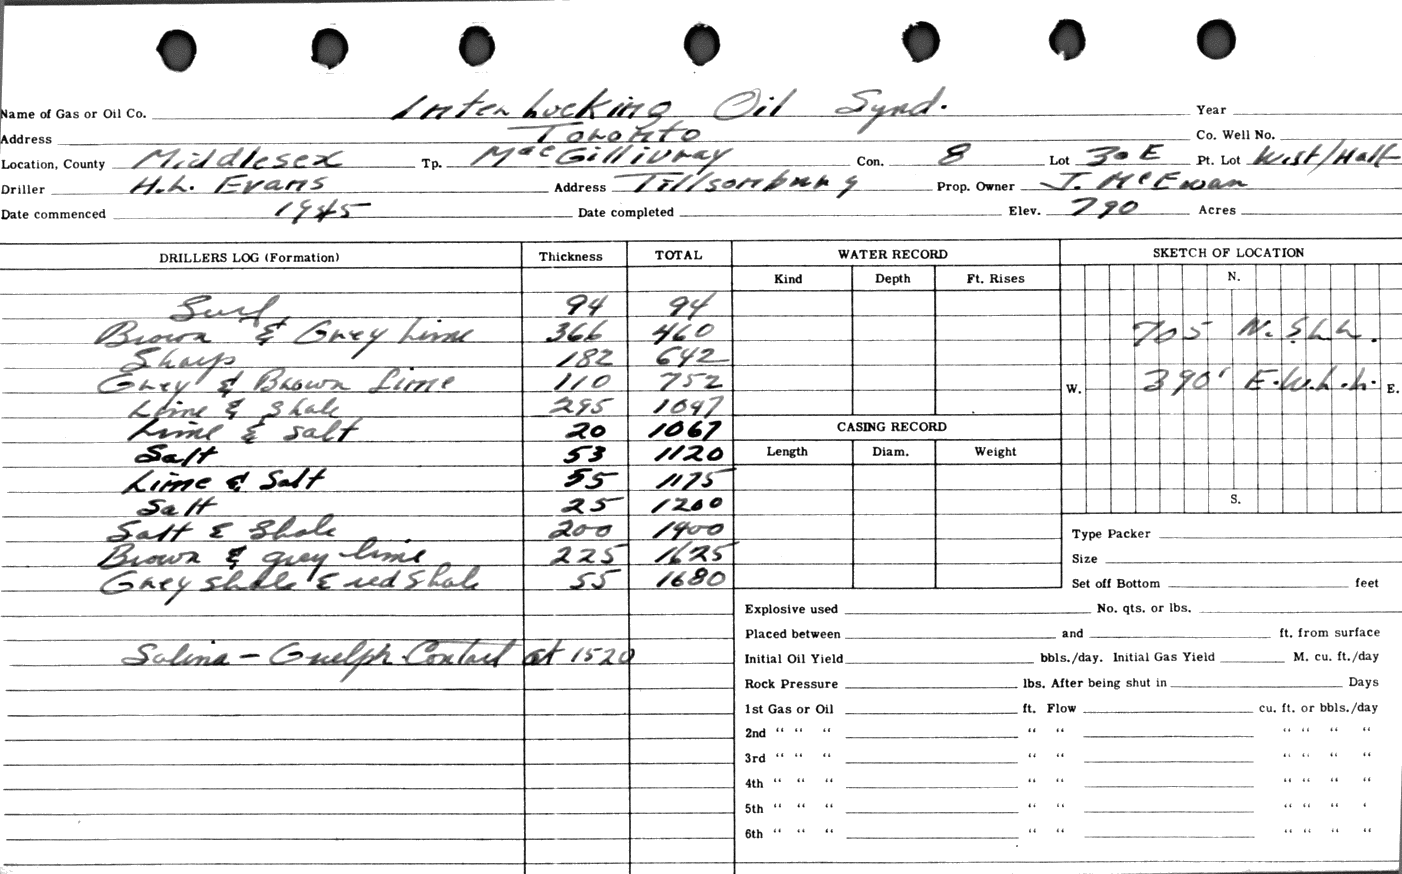 Name of Gas or Oil Co. Interlocking Oil Synd. Year
Address Toronto Co. Well No.
Location, County Middlesex Tp. MacGillivray Con. 8 Lot 30 E Pt. Lot West/Half
Driller H.L. Evans Address Tillsonburg Prop. Owner J. McEwan
Date commenced 1945 Date completed Elev. 790 Acres
DRILLERS LOG (Formation) Thickness TOTAL WATER RECORD SKETCH OF LOCATION
Kind Depth Ft. Rises N.
Surf. 94 94
Brown & Grey Lime 366 460 705 N.S.L.L.
Sharp 182 642
Grey & Brown Lime 110 752 W. 390' E.W.L.L. E.
Lime & Shale 295 1047
Lime & Salt 20 1067 CASING RECORD
Salt 53 1120 Length Diam. Weight
Lime & Salt 55 1175
Salt 25 1200 S.
Salt & Shale 200 1400 Type Packer
Brown & grey lime 225 1625 Size
Grey shale & red Shale 55 1680 Set off Bottom feet
Explosive used No. qts. or lbs.
Placed between and ft. from surface
Salina - Guelph Contact at 1520 Initial Oil Yield bbls./day. Initial Gas Yield M. cu. ft./day
Rock Pressure lbs. After being shut in Days
1st Gas or Oil ft. Flow cu. ft. or bbls./day
2nd " " " " " " " " "
3rd " " " " " " " " "
4th " " " " " " " " "
5th " " " " " " " " '
6th " " " " " " " " "